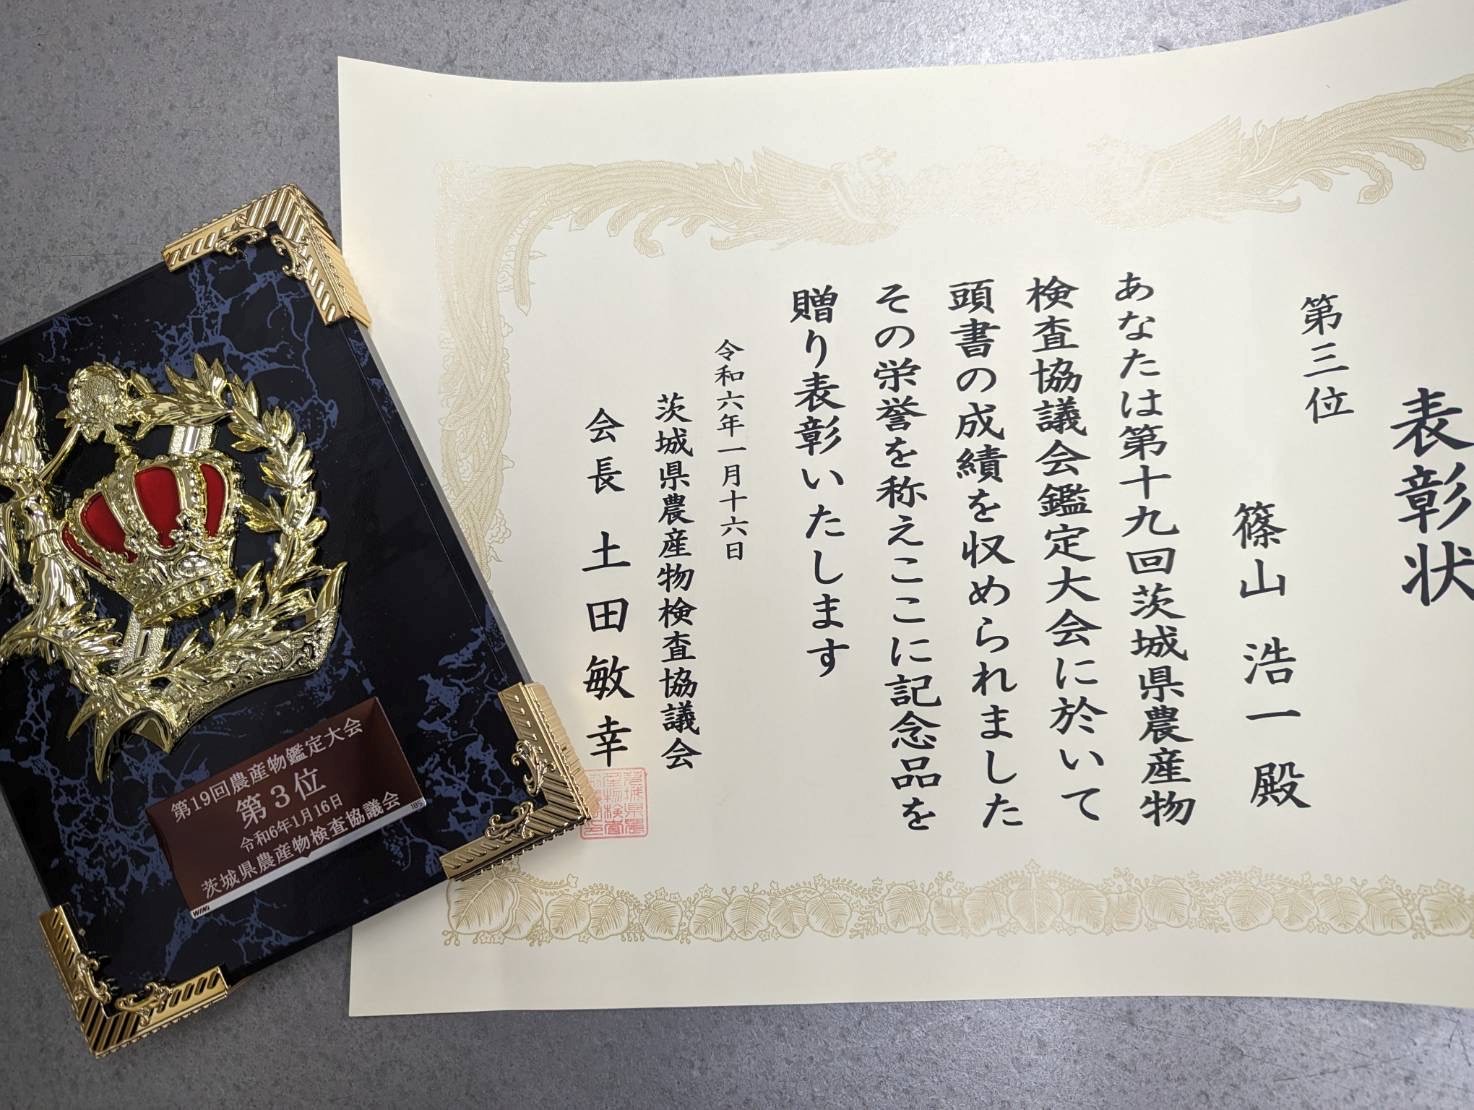 表彰状
第三位
篠山浩一殿
あなたは第十九回茨城県農産物
検査協議会鑑定大会に於いて
頭書の成績を収められました
その栄誉を称えここに記念品を
贈り表彰いたします
令和六年一月十六日
茨城県農産物検査協議会
会長 土田敏幸
第19回農産物鑑定大会
第3位
令和6年1月16日
茨城県農産物検査協議会
WINs